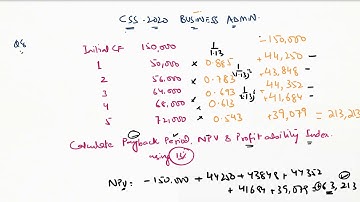 CSS-2020 BUSINESS ADMIN.
Q8
Initial CF 150,000 1/1.13 -150,000
1 50,000 × 0.885 +44,250
2 56,000 × 0.783 +43,848
3 64,000 × 0.693 +44,352
4 68,000 × 0.613 +41,684
5 72,000 × 0.543 +39,079 = 213,213
Calculate Payback Period, NPV & Profitability Index.
using 13%
NPV = -150,000 + 44250 + 43848 + 44352
+ 41684 + 39,079 = +63,213